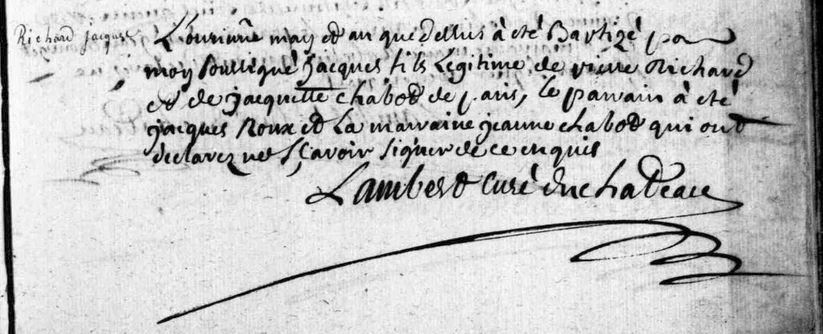 Richard Jacques
L'onzième may et an que dessus à été Baptizé par
moy soussigné Jacques fils Legitime de pierre Richard
et de jacquette chabot de paris, le parrain à été
jacques Roux et La marraine jeanne chabot qui ont
declarez ne sçavoir signer de ce enquis
Lambert Curé du chateau